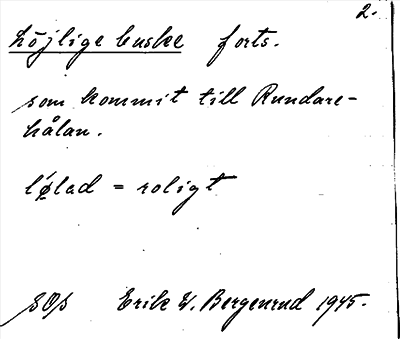 2.
höjlige buske forts.
som kommit till Rundare-
hålan.
lǿlad = roligt
SOs Erik W. Bergenrud 1945.